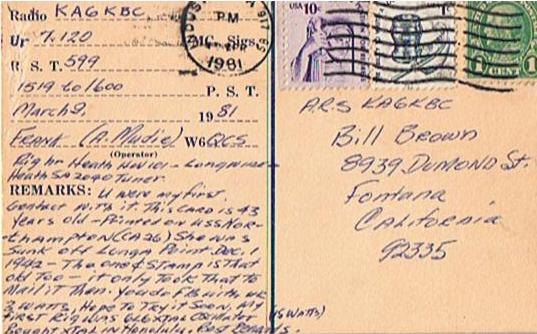 Radio KA6KBC
Ur 7.120 MC. Sigs.
R. S. T. 599
1519 to 1600 P. S. T.
March 8, 1981
FRANK (A. Mudie) W6QCS
(Operator)
Rig hr Heath HW101 - Longwire -
Heath SA2040 Tuner.
REMARKS: U were my first
Contact with it. This card is 43
years old - Printed on USS Nor-
thampton (CA26) She was
sunk off Lunga Point Dec. 1
1942 - The one ¢ stamp is that
old too - it only took that to
mail it then. You do FB with ur
3 watts, Hope to try it soon. My
first rig was 6L6 xtal oscillator (15 watts)
Bought xtal in Honolulu. Best Regards.
PM
1981
917
USA 10c
1c
1 CENT 1
ARS KA6KBC
Bill Brown
8939 Dumond St.
Fontana
California
92335